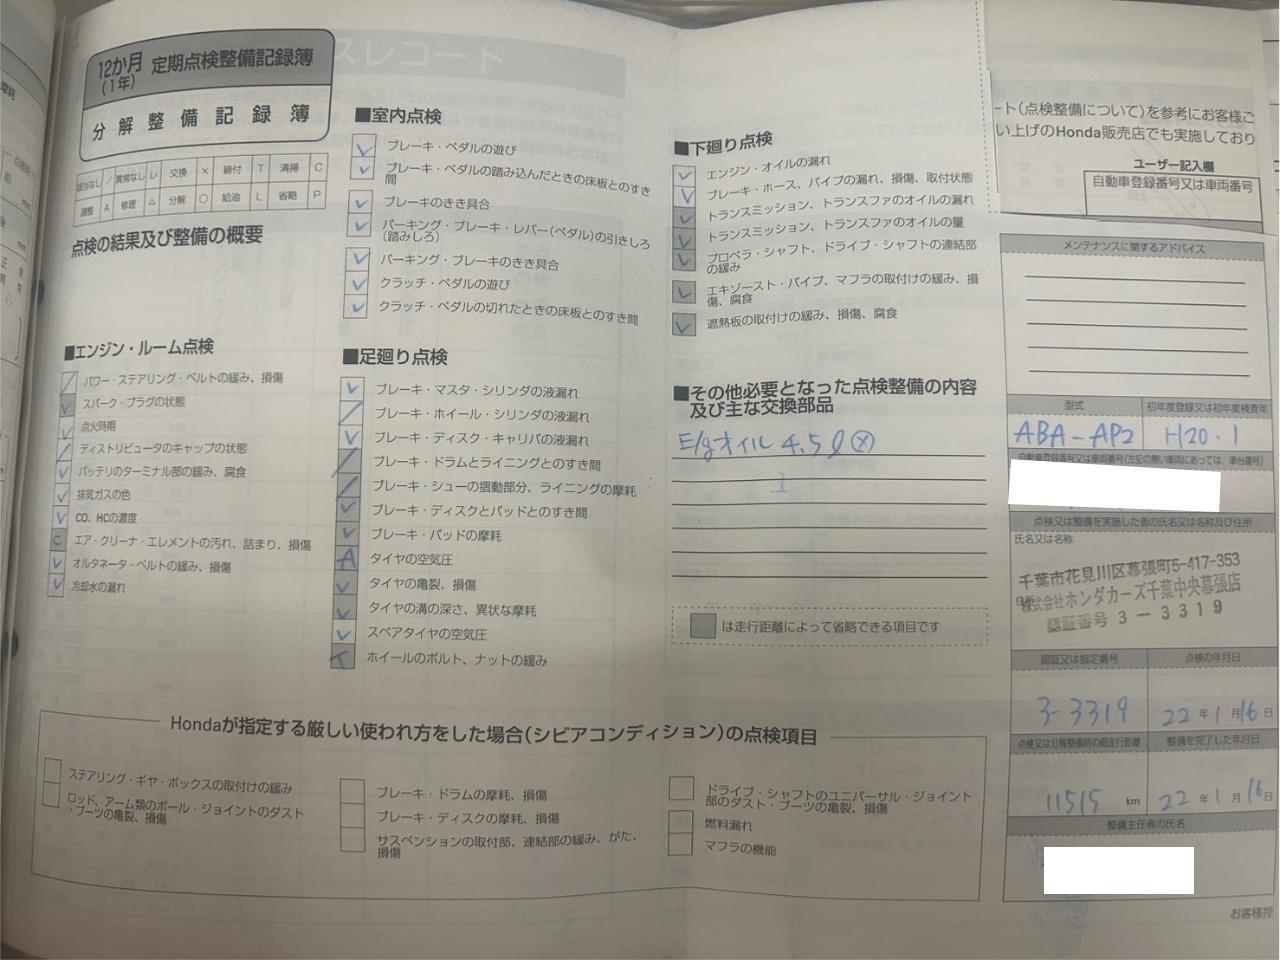 12か月 定期点検整備記録簿
(1年)
分解整備記録簿
該当なし ／ 異常なし レ 交換 × 締付 T 清掃 C
調整 A 修理 △ 分解 ○ 給油 L 省略 P
点検の結果及び整備の概要
■エンジン・ルーム点検
／ パワー・ステアリング・ベルトの緩み、損傷
レ スパーク・プラグの状態
レ 点火時期
／ ディストリビュータのキャップの状態
レ バッテリのターミナル部の緩み、腐食
レ 排気ガスの色
レ CO、HCの濃度
C エア・クリーナ・エレメントの汚れ、詰まり、損傷
レ オルタネータ・ベルトの緩み、損傷
レ 冷却水の漏れ
■室内点検
レ ブレーキ・ペダルの遊び
レ ブレーキ・ペダルの踏み込んだときの床板とのすき
間
レ ブレーキのきき具合
レ パーキング・ブレーキ・レバー(ペダル)の引きしろ
(踏みしろ)
レ パーキング・ブレーキのきき具合
レ クラッチ・ペダルの遊び
レ クラッチ・ペダルの切れたときの床板とのすき間
■足廻り点検
レ ブレーキ・マスタ・シリンダの液漏れ
／ ブレーキ・ホイール・シリンダの液漏れ
レ ブレーキ・ディスク・キャリパの液漏れ
／ ブレーキ・ドラムとライニングとのすき間
／ ブレーキ・シューの摺動部分、ライニングの摩耗
レ ブレーキ・ディスクとパッドとのすき間
レ ブレーキ・パッドの摩耗
A タイヤの空気圧
レ タイヤの亀裂、損傷
レ タイヤの溝の深さ、異状な摩耗
レ スペアタイヤの空気圧
T ホイールのボルト、ナットの緩み
■下廻り点検
レ エンジン・オイルの漏れ
レ ブレーキ・ホース、パイプの漏れ、損傷、取付状態
レ トランスミッション、トランスファのオイルの漏れ
レ トランスミッション、トランスファのオイルの量
レ プロペラ・シャフト、ドライブ・シャフトの連結部
の緩み
レ エキゾースト・パイプ、マフラの取付けの緩み、損
傷、腐食
レ 遮熱板の取付けの緩み、損傷、腐食
■その他必要となった点検整備の内容
及び主な交換部品
E/gオイル 4.5ℓ ⊗
は走行距離によって省略できる項目です
Hondaが指定する厳しい使われ方をした場合(シビアコンディション)の点検項目
ステアリング・ギヤ・ボックスの取付けの緩み
ロッド、アーム類のボール・ジョイントのダスト
・ブーツの亀裂、損傷
ブレーキ・ドラムの摩耗、損傷
ブレーキ・ディスクの摩耗、損傷
サスペンションの取付部、連結部の緩み、がた、
損傷
ドライブ・シャフトのユニバーサル・ジョイント
部のダスト・ブーツの亀裂、損傷
燃料漏れ
マフラの機能
ート(点検整備について)を参考にお客様ご
い上げのHonda販売店でも実施しており
ユーザー記入欄
自動車登録番号又は車両番号
メンテナンスに関するアドバイス
型式 初年度登録又は初年度検査年
ABA-AP2 H20.1
自動車登録番号又は車両番号(左記の無い車両にあっては、車台番号)
点検又は整備を実施した者の氏名又は名称及び住所
氏名又は名称
千葉市花見川区幕張町5-417-353
住所
株式会社ホンダカーズ千葉中央幕張店
認証番号 3-3319
認証又は指定番号 点検の年月日
3-3319 22年1月16日
点検又は分解整備時の総走行距離 整備を完了した年月日
11515 km 22年1月16日
整備主任者の氏名
お客様控